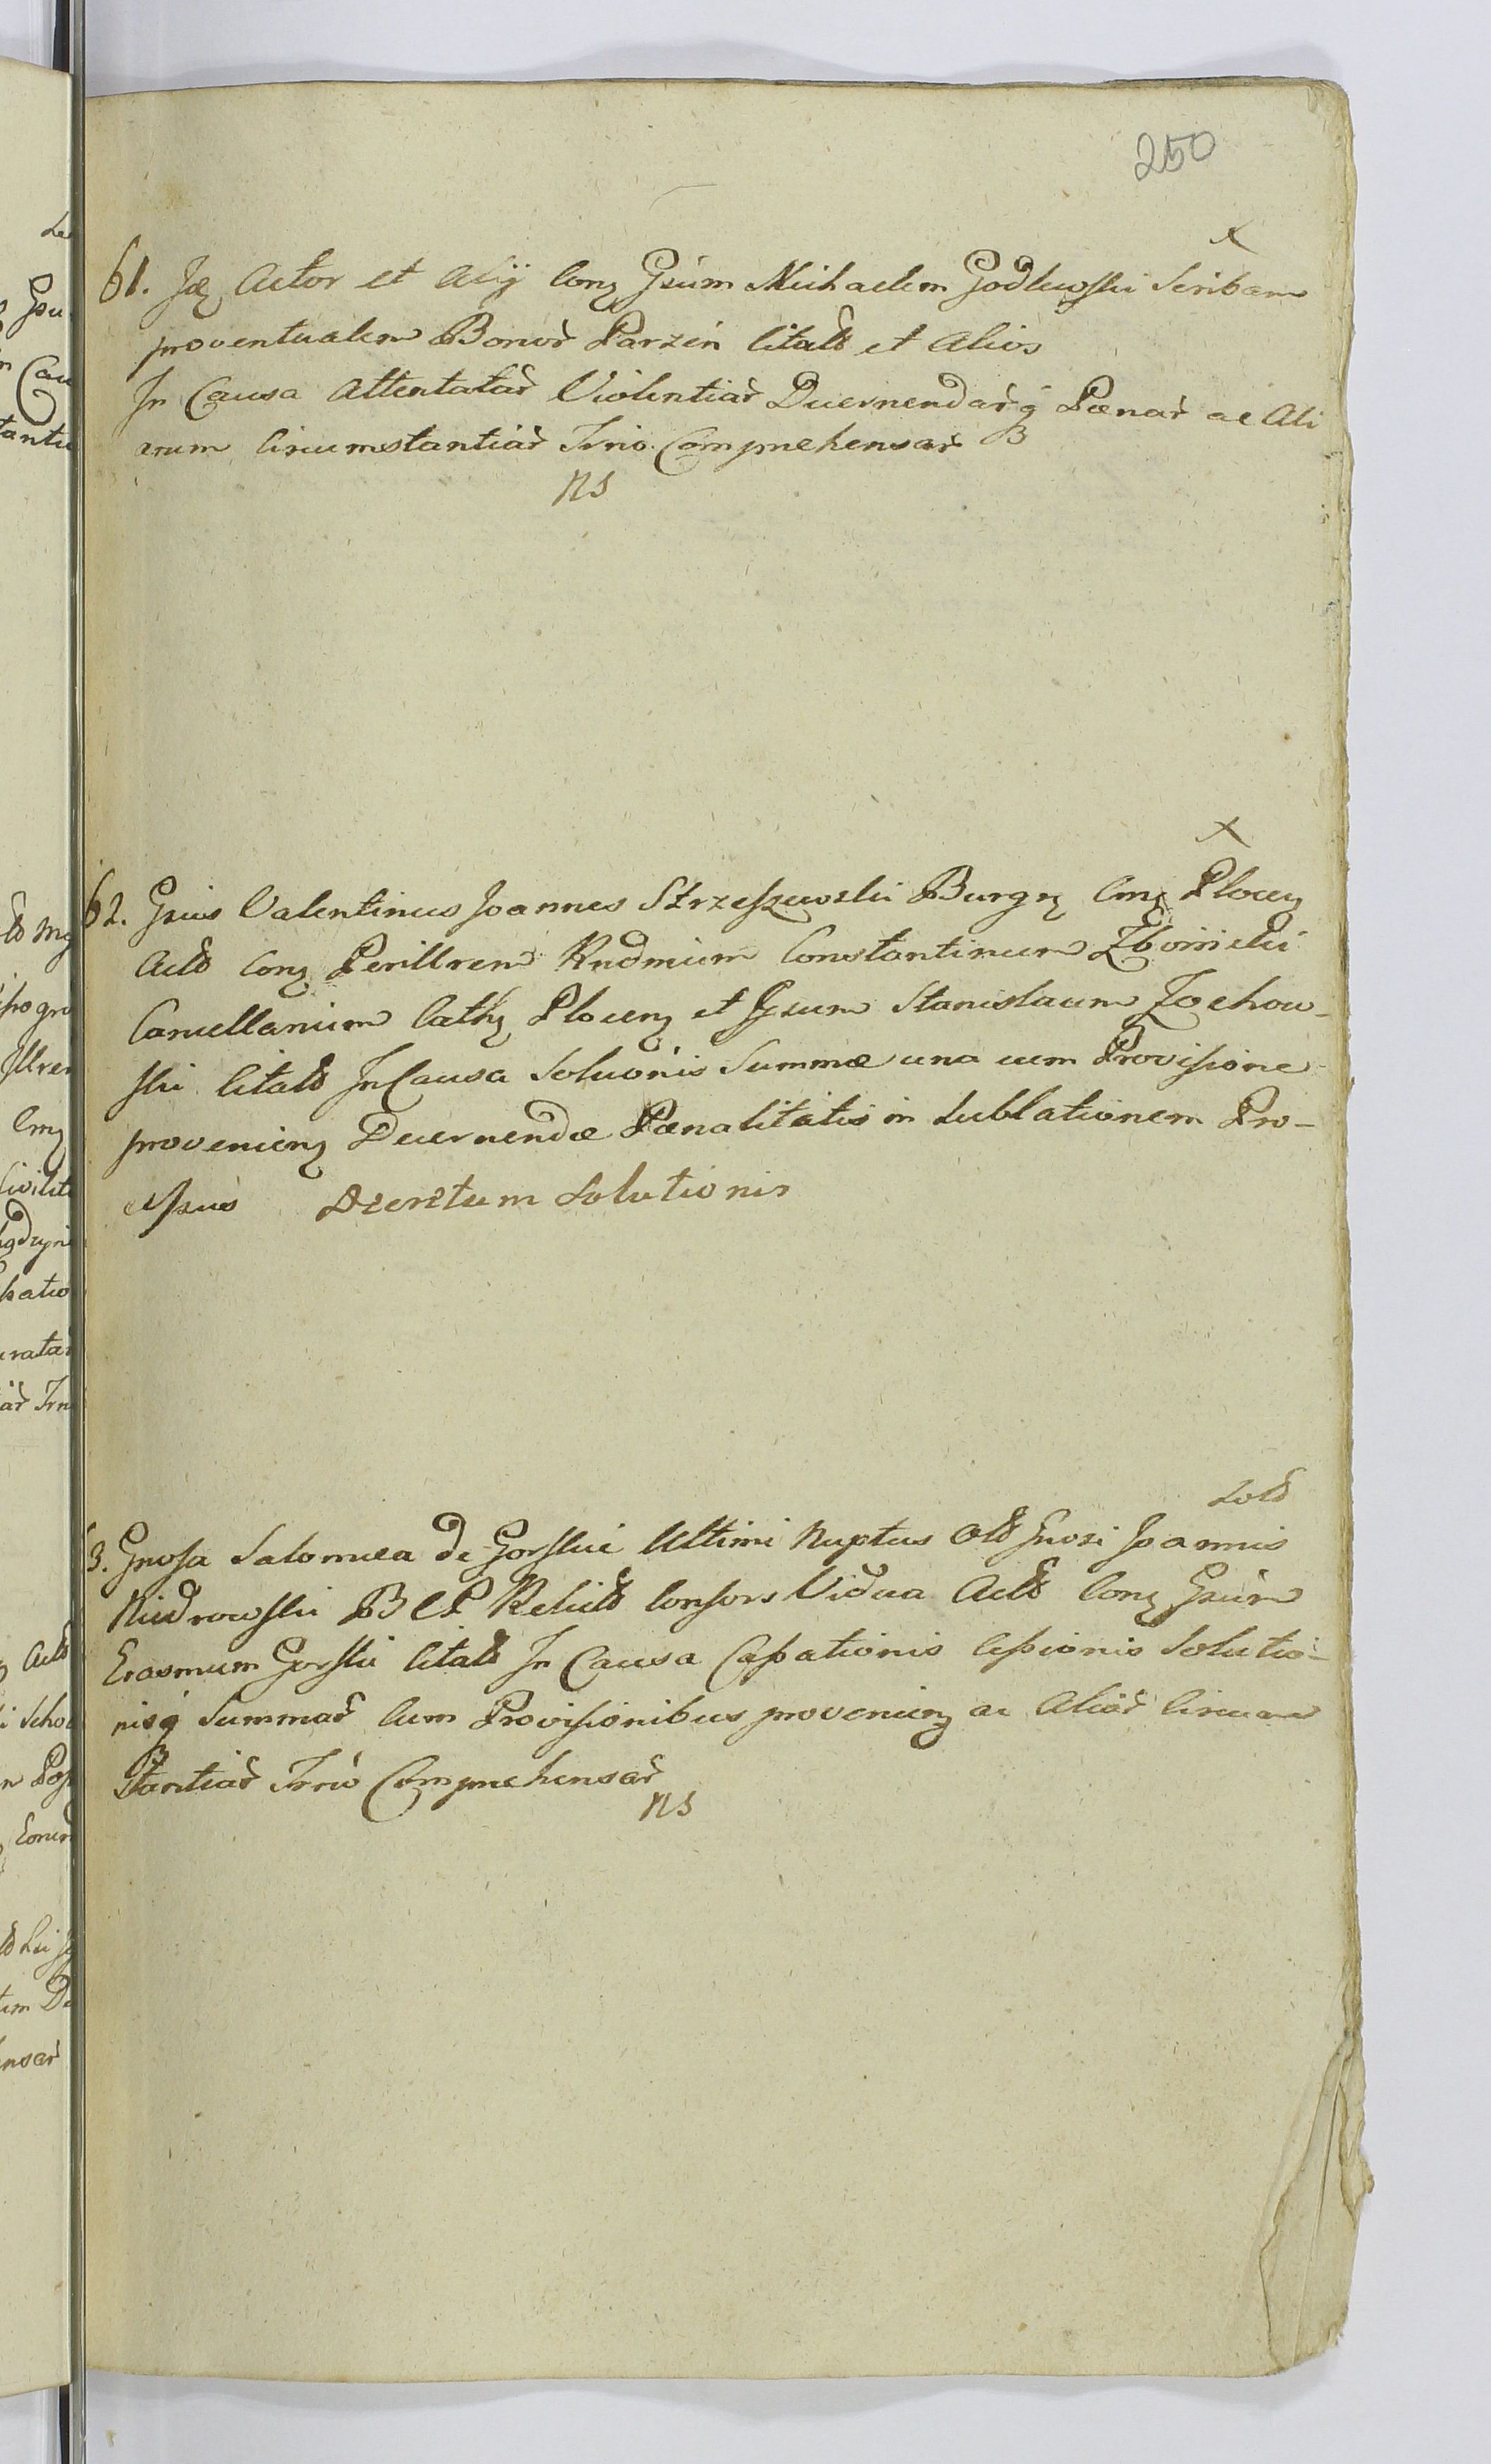 250
x
61. Jdę Actor et Alij Conę Gsum Michaelem Godlewski Scribam
proventualem Bonor Parzeń Citatt et Alios
In Causa Attentatar Violentiar Decernendarq Pænar ac Ali
arum Circumstantiar Trio Comprehensar
ns
x
62. Gsus Valentinus Joannes Strzeszewski Burgę Cnę Plocen
Actt Conę Perillrem Rndmum Constantinum Zboiński
Cancellarium Cathę Plocenę et Gsum Stanislaum Zochow-
ski Citatt In Causa Soluonis Summæ una cum Provisione
provenienę Decernendæ Pænalitatis in Sublationem Pro-
cessus Decretum Solutionis
Soltt
63. Gnosa Salomea de Gorskie Ultimi Nuptus Olt Gnosi Joannis
Niedrowski B C P Relictt Consors Vidua Actt Conę Gsum
Erasmum Gorski Citatt In Causa Cassationis Cessionis Solutio-
nisq Summar Cum Provisionibus provenienę ac Aliar Circum
stantiar Trio Comprehensar
ns